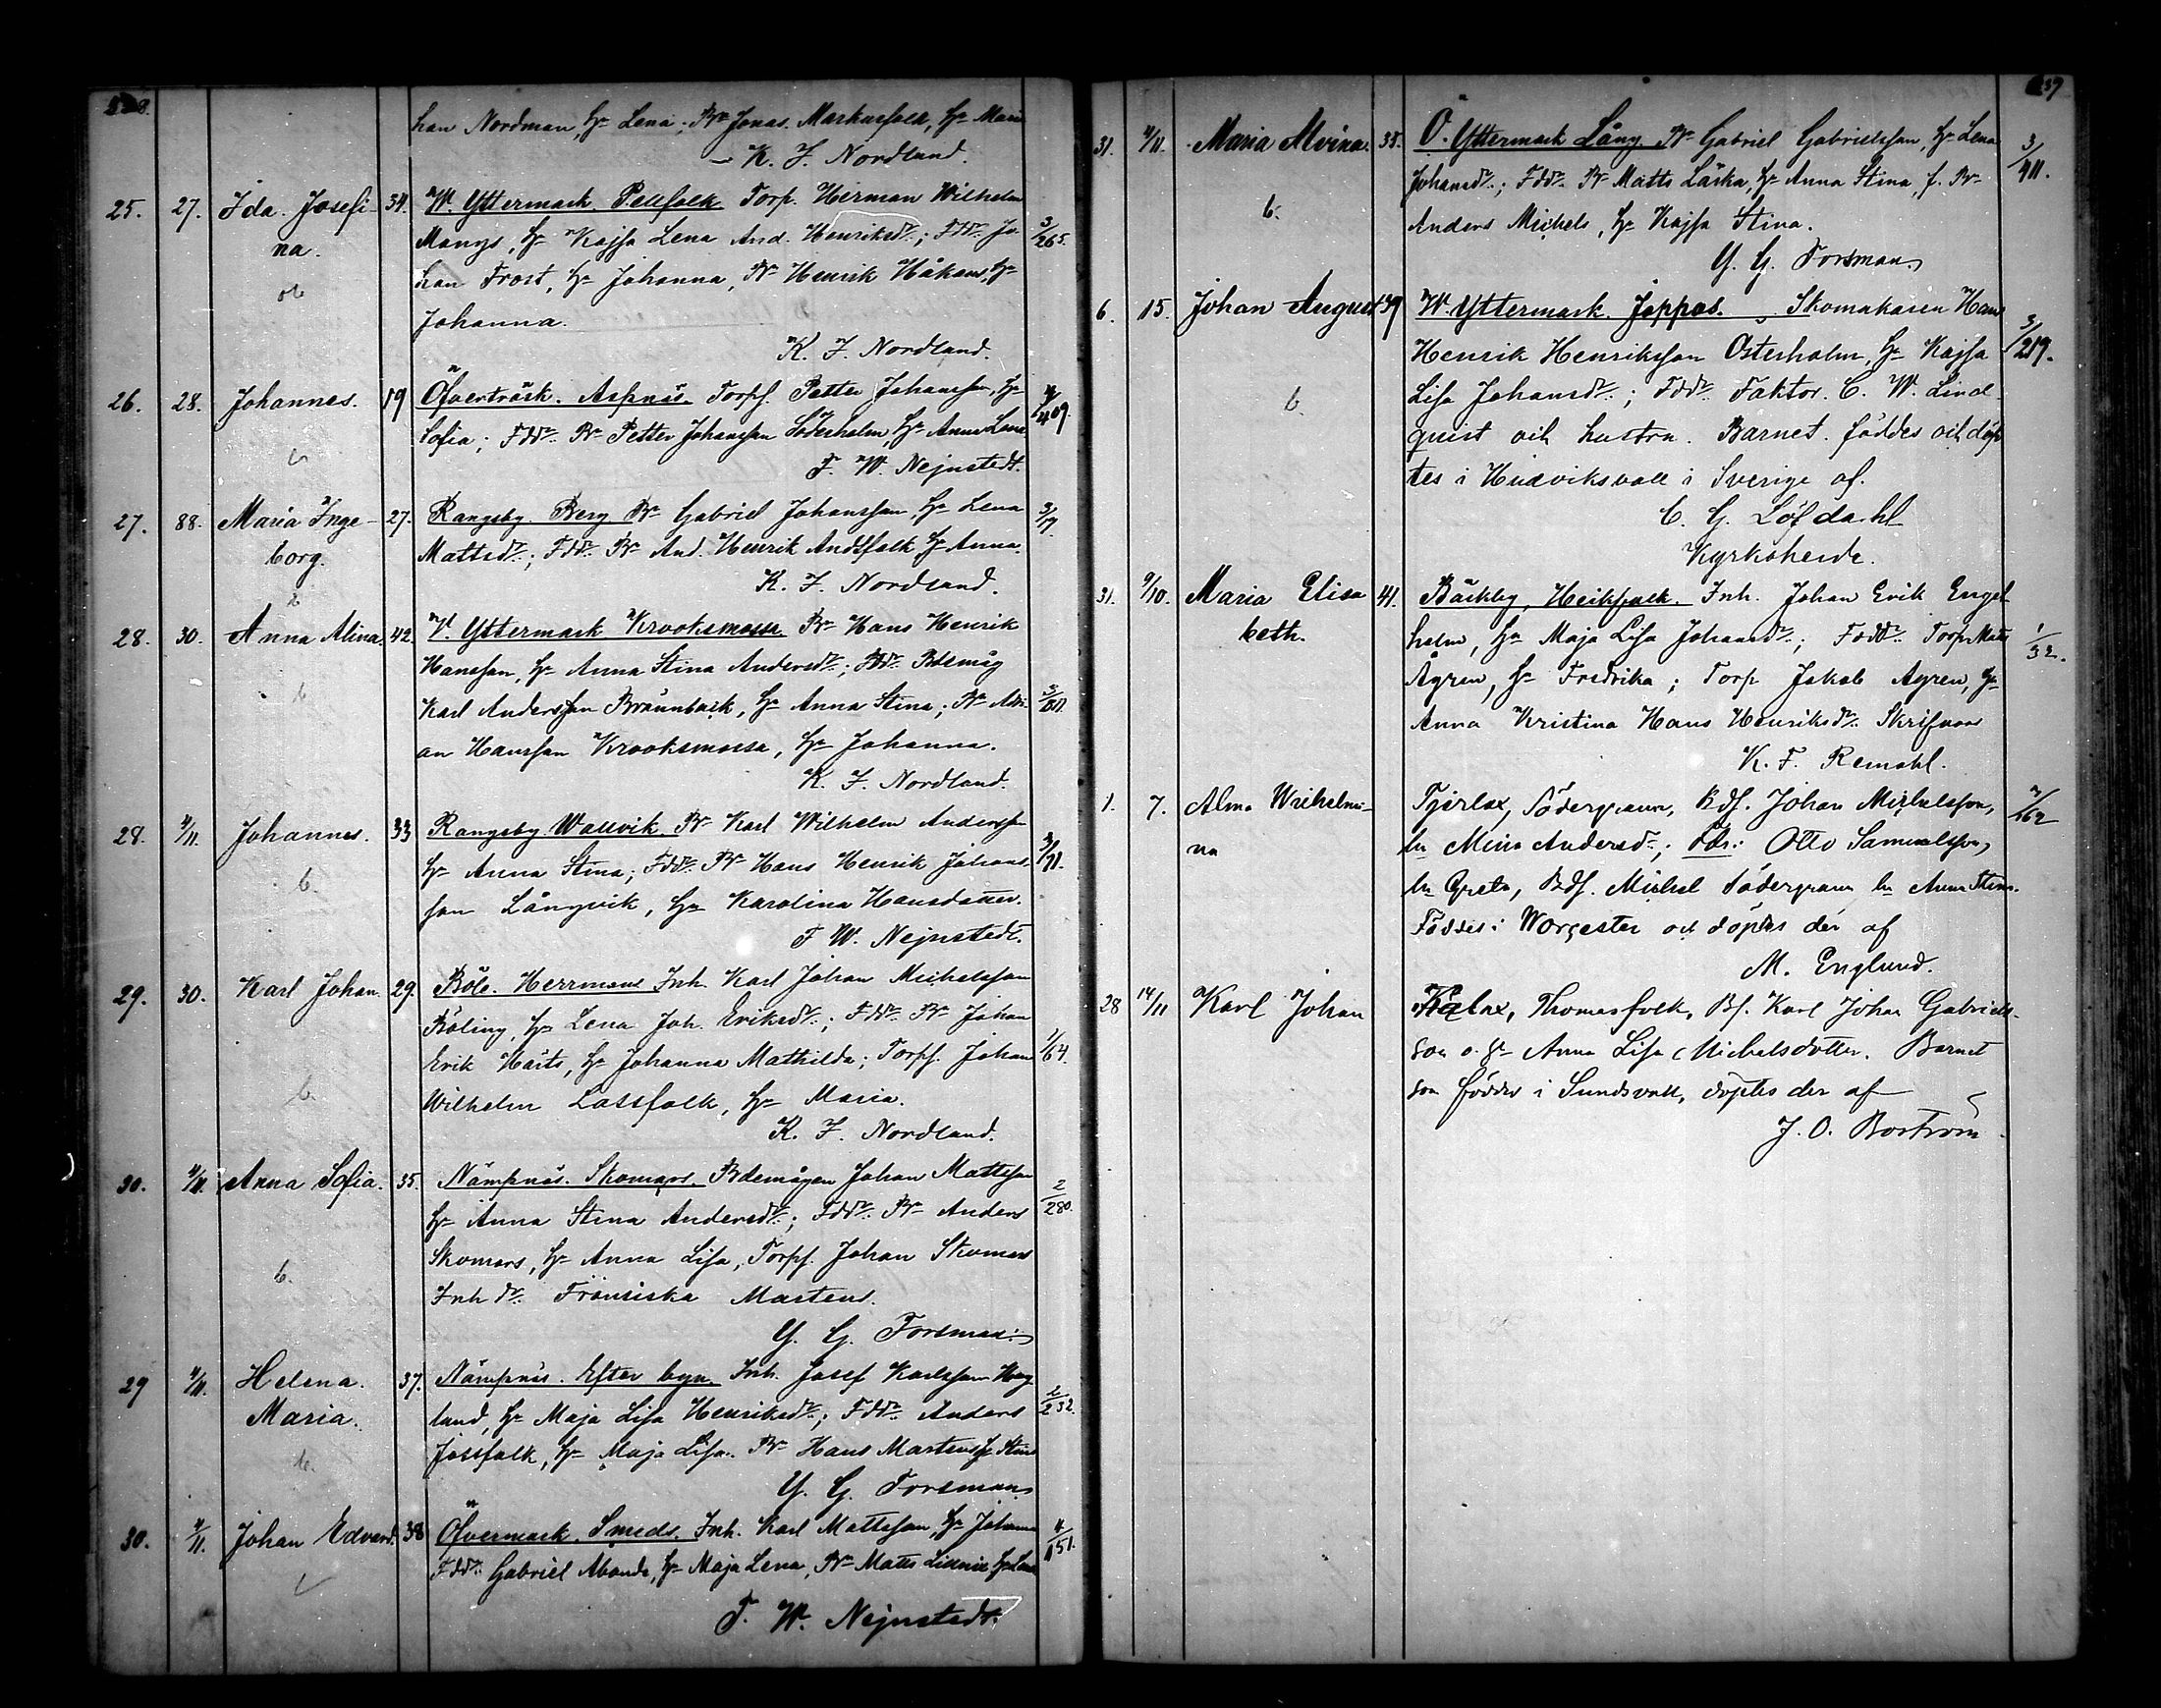 han Nordman, Hr Lena; Bn Jonas Markusfolk, Hr Maria
K. J. Nordlund.
25. 27. Ida Josefi- 34. W. Yttermark Pellfolk Torp. Herman Wilhelm
na. Mangs, Hr Kajsa Lena And. Henriksdr; Fddr Jo- 3/265.
han Frost, Hr Johanna, Bn Henrik Håkans, Hr
Johanna.
K. J. Nordlund.
26. 28. Johannes. 19 Öfverträsk. Aspnäs. Torpf. Petter Johansson, Hr 4/409
Sofia; Fddr Bn Petter Johansson Söderholm, Hr Anna Lena
F. W. Nejnstedt.
27. 28. Maria Inge- 27. Rangsby. Berg. Bn Gabriel Johansson Hr Lena 3/17.
borg. Mattsdr; Fddr Bn And. Henrik Andsfolk Hr Anna.
K. J. Nordlund.
28. 30. Anna Alina. 42. V. Yttermark Krooksmossa Bn Hans Henrik
b Hansson, Hr Anna Stina Andersdr; Fddr Bdemåg
Karl Andersson Brännback, Hr Anna Stina; Bn Adri-
an Hansson Krooksmossa, Hr Johanna.
K. J. Nordlund.
28. 4/11. Johannes. 33 Rangsby Wallvik. Bn Karl Wilhelm Andersson 3/91.
b. Hr Anna Stina; Fddr Bn Hans Henrik Johans-
son Långvik, Hr Karolina Hansdotter.
F. W. Nejnstedt.
29. 30. Karl Johan. 29. Böle. Herrmans Inh. Karl Johan Michelsson
Böling, Hr Lena Joh. Eriksdr; Fddr Bn Johan
b. Erik Härts, Hr Johanna Mathilda; Torpf. Johan 1/64.
Wilhelm Lassfolk, Hr Maria.
K. J. Nordlund.
30. 4/11. Anna Sofia. 35. Nämpnäs. Skomars. Bdemågen Johan Mattsson 2/280.
Hr Anna Stina Andersdr; Fddr Bn Anders
Skomars, Hr Anna Lisa, Torpf. Johan Skomars
b. Inh dr Fransiska Martens.
Y. G. Forsman.
29 4/11. Helena 37. Nämpnäs. Efter byn. Inh. Josef Karlsson Hög- 2/232.
Maria. land, Hr Maja Lisa Henriksdr; Fddr Anders
b. Jossfolk, Hr Maja Lisa. Bn Hans Martens Hr Stina
Y. G. Forsman.
30. 4/11. Johan Edvard. 38 Öfvermark. Smeds. Inh. Karl Mattsson, Hr Johanna 4/151.
Fddr Gabriel Abonde, Hr Maja Lena, Bn Matts Hr Lena
F. W. Nejnstedt.
31. 4/11. Maria Alvina. 35. Ö. Yttermark Lång. Bn Gabriel Gabrielsson, Hr Lena 3/411.
Johansdr; Fddr Bn Matts Lärka, Hr Anna Stina, f. Bn
b. Anders Michels, Hr Kajsa Stina.
Y. G. Forsman.
6. 15. Johan August 39 W. Yttermark. Jeppas. Skomakaren Hans
Henrik Henriksson Österholm, Hr Kajsa 3/219.
Lisa Johansdr; Fddr Faktor C. W. Lind-
b. quist och hustru. Barnet föddes och döp-
tes i Hudviksvall i Sverige af.
C. G. Löfdahl
Kyrkoherde.
31. 9/10. Maria Elisa 41. Bäckby, Heikfolk. Inh. Johan Erik Engel-
beth. holm, Hr Maja Lisa Johansdr; Fddr Torp. Matts 1/32.
Ågren, Hr Fredrika; Torp Jakob Ågren, Hr
Anna Kristina Hans Henriksdr. Skrifvars
K. F. Remahl.
1. 7. Alma Wilhelmi- Tjerlax, Södergrann, Bdf. Johan Michelsson, 2/162
na hu Mina Andersdr; Fdr: Otto Samuelsson,
hu Greta, Bdf. Michel Södergrann hu Anna Stina.
Föddes i Worcester och döptes der af
M. Englund.
28 14/11 Karl Johan Kalax, Thomasfolk, Bf. Karl Johan Gabriels-
son o. Hr Anna Lisa Michelsdotter. Barnet
son föddes i Sundsvall, döptes der af
J. O. Boström